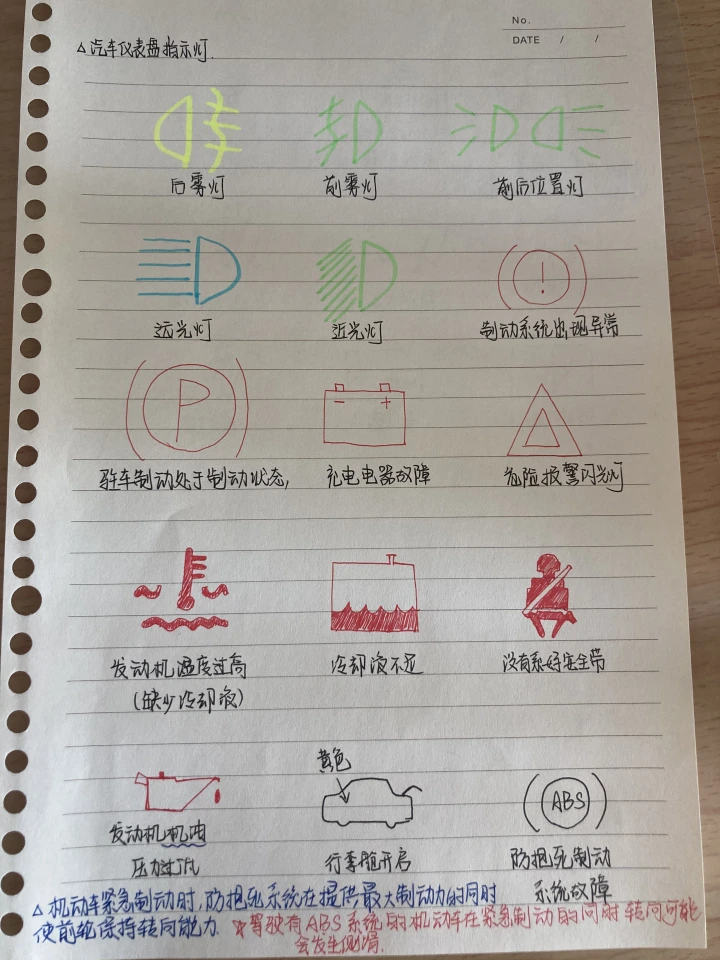 No.
DATE / /
△汽车仪表盘指示灯.
后雾灯 前雾灯 前后位置灯
远光灯 近光灯 制动系统出现异常
!
P
- +
驻车制动处于制动状态, 充电电器故障 危险报警闪光灯
发动机温度过高 冷却液不足 没有系好安全带
(缺少冷却液)
黄色
ABS
发动机机油 行李舱开启 防抱死制动
压力过低 系统故障
△机动车紧急制动时,防抱死系统在提供最大制动力的同时
使前轮保持转向能力. *驾驶有ABS系统的机动车在紧急制动的同时转向可能
会发生侧滑.